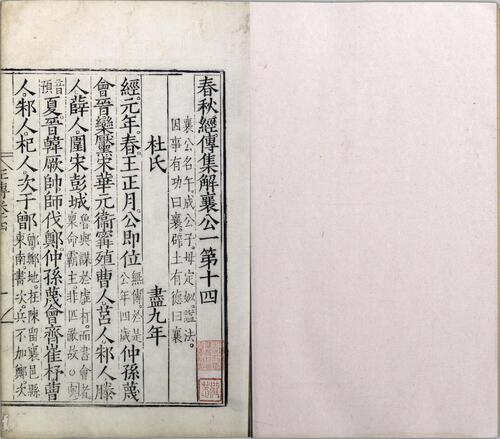 春秋經傳集解襄公一第十四
襄公名午成公子母定姒謚法
因事有功曰襄辟土有德曰襄
杜氏 盡九年
經元年春王正月公即位 無傳於是公年四歲 仲孫蔑
會晉欒黶宋華元衛甯殖曹人莒人邾人滕
人薛人圍宋彭城 魯與謀於虛朾而書會者稟命霸主非匹敵故○與
音預 夏晉韓厥帥師伐鄭仲孫蔑會齊崔杼曹
人邾人杞人次于鄫 鄫鄭地在陳留襄邑縣東南書次兵不加鄭次